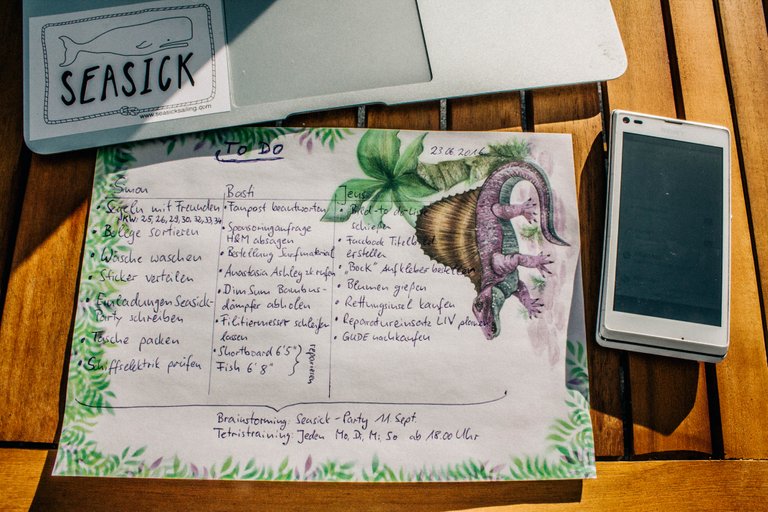 SEASICK
www.seasicksailing.com
TO DO
23.06.2014
Simon
• Segeln mit Freunden
KW: 25, 26, 29, 30, 32, 33, 34
• Belege sortieren
• Wäsche waschen
• Sticker verteilen
• Einladungen Seasick-
Party schreiben
• Tasche packen
• Schiffselektrik prüfen
Basti
• Fanpost beantworten
• Sponsoringanfrage
H&M absagen
• Bestellung Surfmaterial
• Anastasia Ashley anrufen
• Dim Sum Bambus-
dämpfer abholen
• Filitiermesser schleifen
lassen
• Shortboard 6'5"
Fish 6'8"
reparieren
Jens
• Bild-to do Liste
schießen
• Facebook Titelbild
erstellen
• "Bock" Aufkleber bestellen
• Blumen gießen
• Rettungsinsel kaufen
• Reparatureinsatz LIV planen
• GUDE nachkaufen
Brainstorming: Seasick-Party 11. Sept.
Tetristraining: Jeden Mo, Di, Mi, So ab 18.00 Uhr
SONY